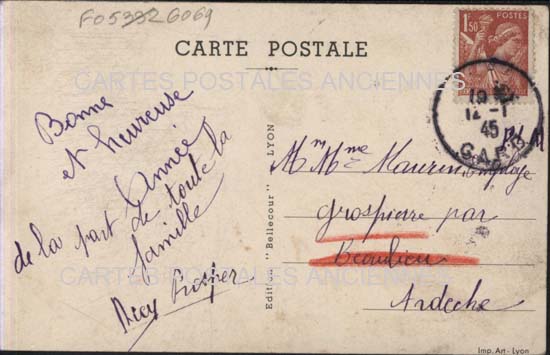 F05382 6069
CARTE POSTALE
POSTES
1,50
CARTES POSTALES ANCIENNES
Bonne
et heureuse
Année
de la part de toute la
famille
19
12-1
45
GARE
Edition "Bellecour" LYON
Mr Mme
grospierre par
Beaulieu
Ardèche
CARTES POSTALES ANCIENNES
Imp. Art - Lyon